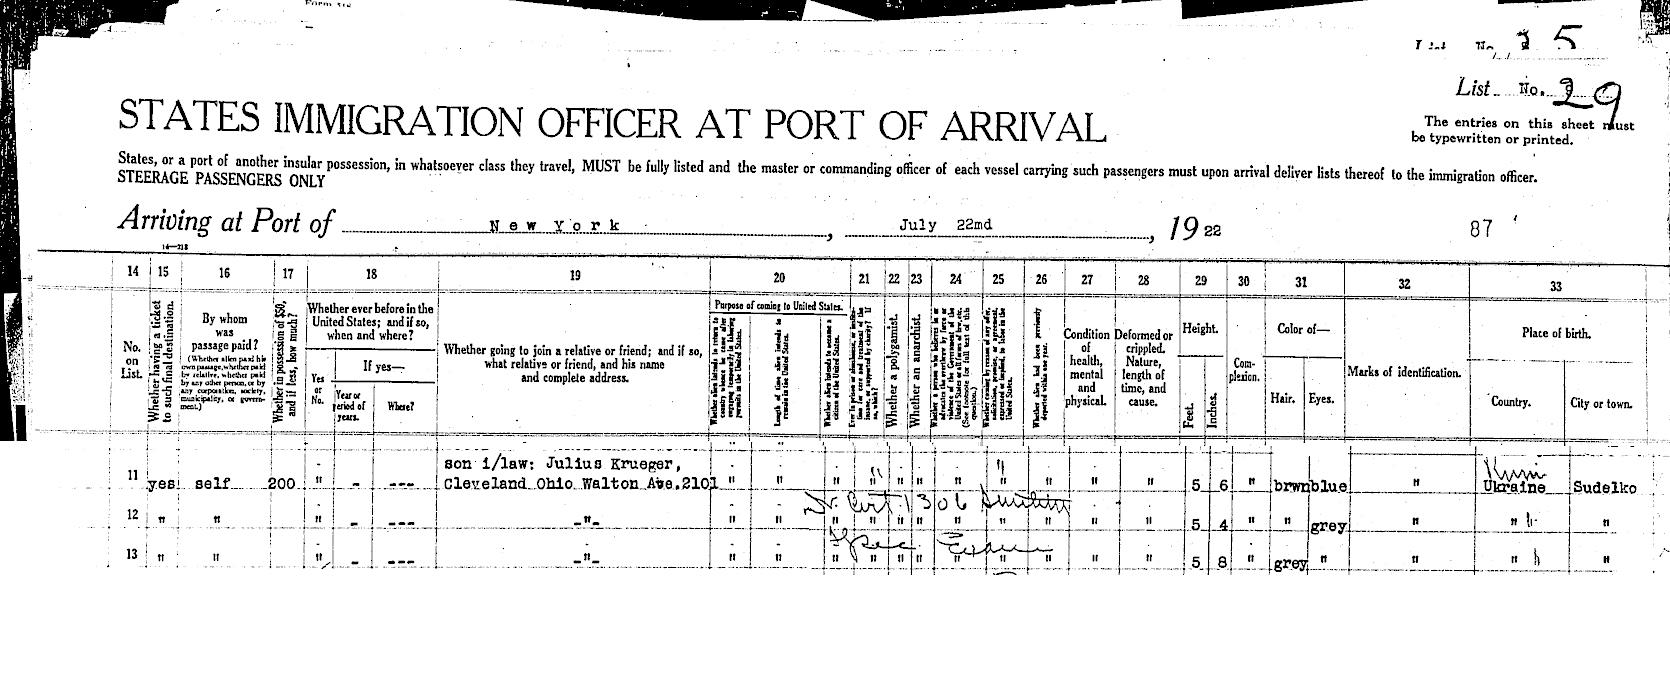 Form
No. 5
List No. 29
The entries on this sheet must
be typewritten or printed.
STATES IMMIGRATION OFFICER AT PORT OF ARRIVAL
States, or a port of another insular possession, in whatsoever class they travel, MUST be fully listed and the master or commanding officer of each vessel carrying such passengers must upon arrival deliver lists thereof to the immigration officer.
STEERAGE PASSENGERS ONLY
Arriving at Port of New York, July 22md, 1922 87
14 15 16 17 18 19 20 21 22 23 24 25 26 27 28 29 30 31 32 33
No. on List.
Whether having a ticket to such final destination.
By whom was passage paid?
(Whether alien paid his own passage, whether paid by relative, whether paid by any other person, or by any corporation, society, municipality, or government.)
Whether in possession of $50, and if less, how much?
Whether ever before in the United States; and if so, when and where?
Yes or No.
If yes—
Year or period of years.
Where?
Whether going to join a relative or friend; and if so, what relative or friend, and his name and complete address.
Purpose of coming to United States.
Length of time alien intends to remain in the United States.
Whether a polygamist.
Whether an anarchist.
Condition of health, mental and physical.
Deformed or crippled. Nature, length of time, and cause.
Height.
Feet.
Inches.
Complexion.
Color of—
Hair.
Eyes.
Marks of identification.
Place of birth.
Country.
City or town.
son i/law: Julius Krueger,
11 yes self 200 " - --- Cleveland Ohio Walton Ave.2101 " " " " " " " " " " " 5 6 " brwn blue " Ukraine Sudelko
12 " " " - --- -"- " " " " " " " " " " " 5 4 " " grey " " "
13 " " " - --- -"- " " " " " " " " " " " 5 8 " grey " " " "